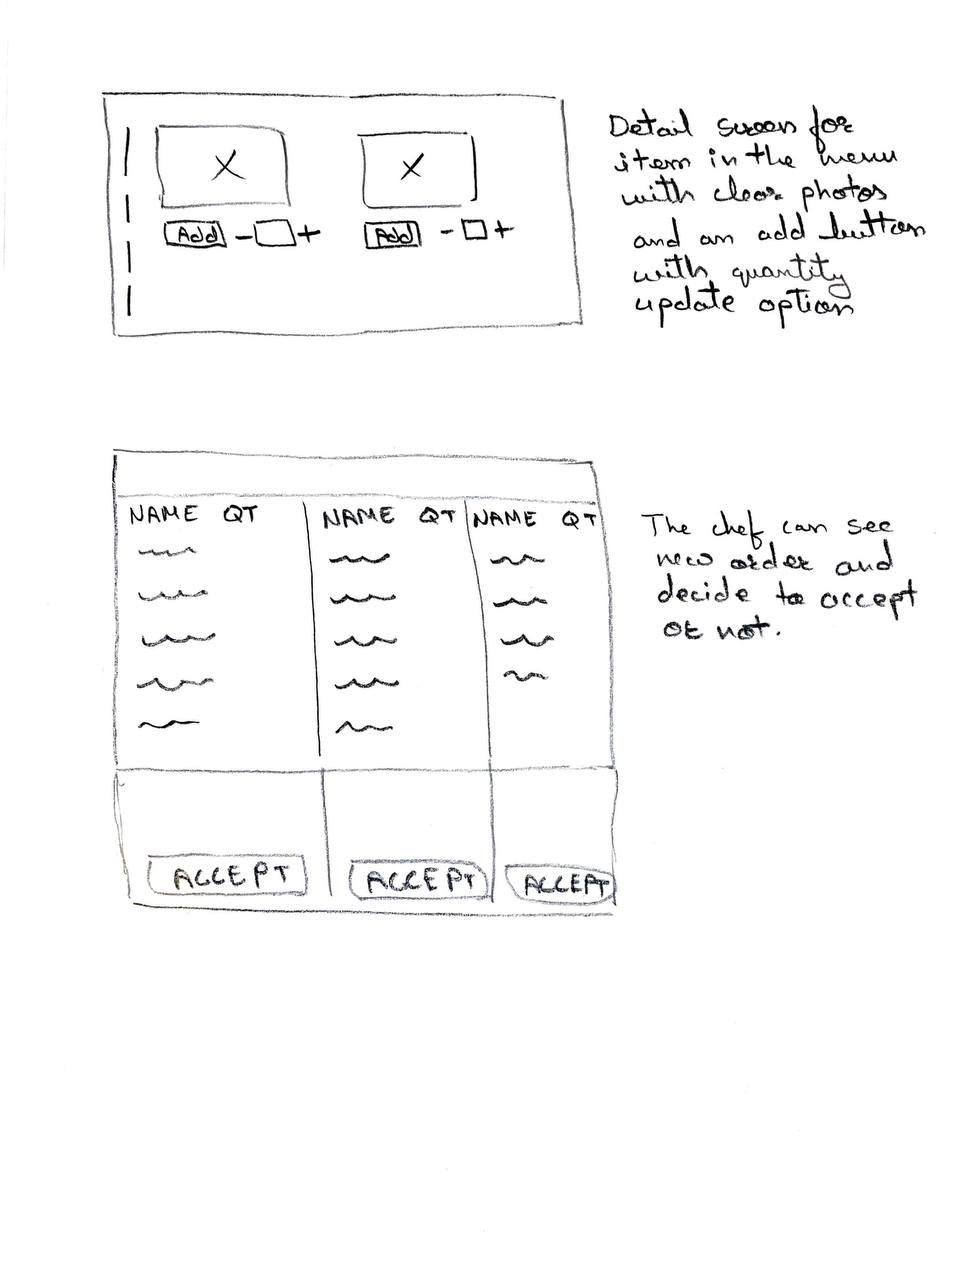 Detail screen for
item in the menu
with clear photos
and an add button
with quantity
update option
X X
Add - + Add - +
NAME QT NAME QT NAME QT
The chef can see
new order and
decide to accept
or not.
ACCEPT ACCEPT ACCEPT